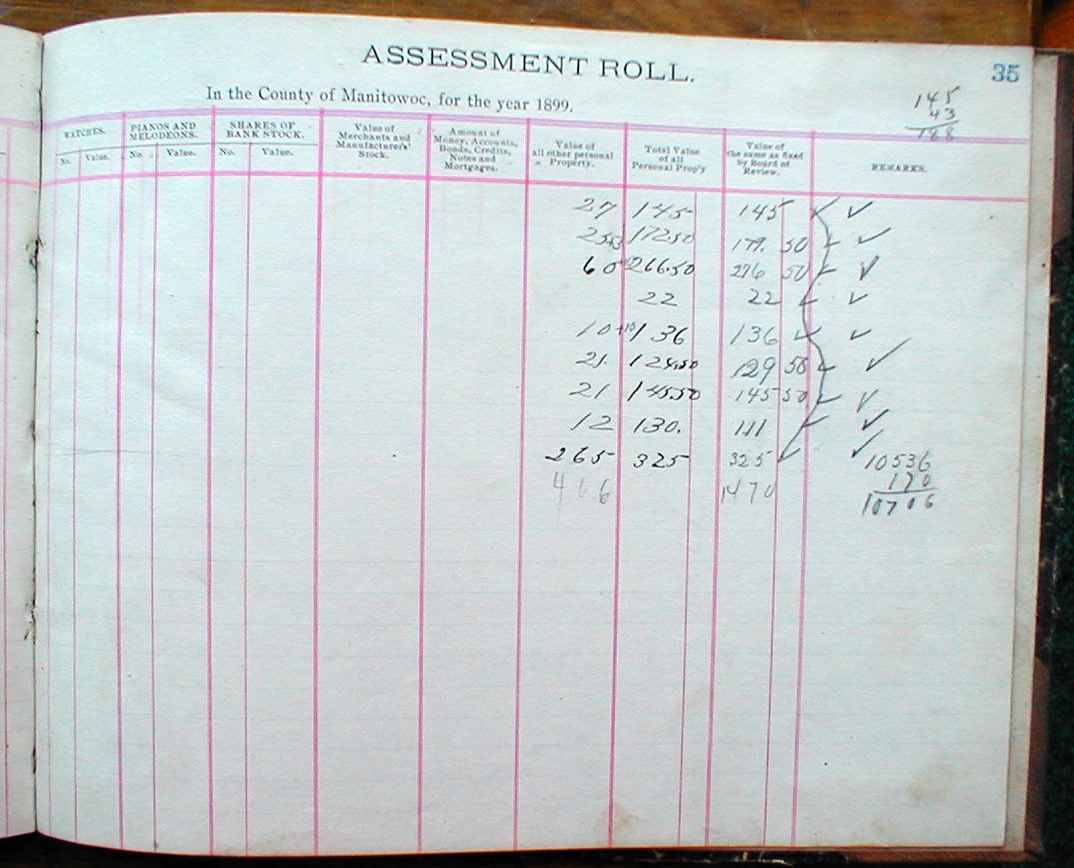 ASSESSMENT ROLL.
35
In the County of Manitowoc, for the year 1899.
145
43
188
WATCHES.
No. Value.
PIANOS AND MELODEONS.
No. Value.
SHARES OF BANK STOCK.
No. Value.
Value of Merchants and Manufacturers' Stock.
Amount of Money, Accounts, Bonds, Credits, Notes and Mortgages.
Value of all other personal Property.
Total Value of all Personal Prop'y
Value of the same as fixed by Board of Review.
REMARKS.
27 145 145 ✓ ✓
172.50 179. 50 ✓ ✓
60 266.50 276 50 ✓ ✓
22 22 ✓ ✓
10+10 136 136 ✓ ✓
21. 129 50 ✓ ✓
21 145.50 145 50 ✓ ✓
12 130. 111 ✓ ✓
265 325 325 ✓ ✓ 10536
1470 170
10706